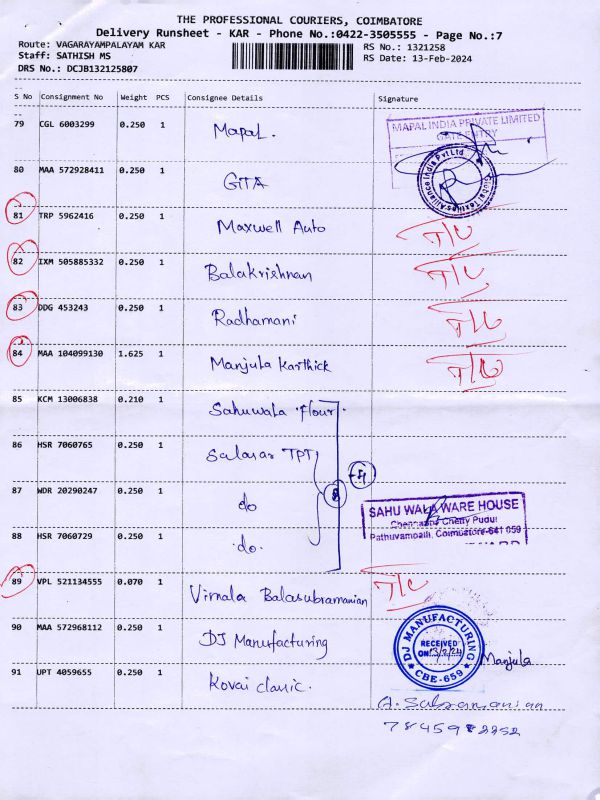 THE PROFESSIONAL COURIERS, COIMBATORE
Delivery Runsheet - KAR - Phone No.:0422-3505555 - Page No.:7
Route: VAGARAYAMPALAYAM KAR RS No.: 1321258
Staff: SATHISH MS RS Date: 13-Feb-2024
DRS No.: DCJB132125807
S No Consignment No Weight PCS Consignee Details Signature
79 CGL 6003299 0.250 1 Mapal.
MAPAL INDIA PRIVATE LIMITED
GATE ENTRY
80 MAA 572928411 0.250 1 GITA
Global Textiles Alliance India Pvt Ltd
81 TRP 5962416 0.250 1 Maxwell Auto T/C
82 IXM 505885332 0.250 1 Balakrishnan T/C
83 DDG 453243 0.250 1 Radhamani T/C
84 MAA 104099130 1.625 1 Manjula Karthick T/C
85 KCM 13006838 0.210 1 Sahuwala flour.
86 HSR 7060765 0.250 1 Salasar TPT
87 WDR 20290247 0.250 1 do
88 HSR 7060729 0.250 1 do.
SAHU WALA WARE HOUSE
Chennappa Chetty Pudur
Pathuvampalli, Coimbatore-641 659
89 VPL 521134555 0.070 1 Virnala Balasubramanian T/C
90 MAA 572968112 0.250 1 DJ Manufacturing
DJ MANUFACTURING
RECEIVED
ON: 13/2/24
CBE-659
Manjula
91 UPT 4059655 0.250 1 Kovai classic.